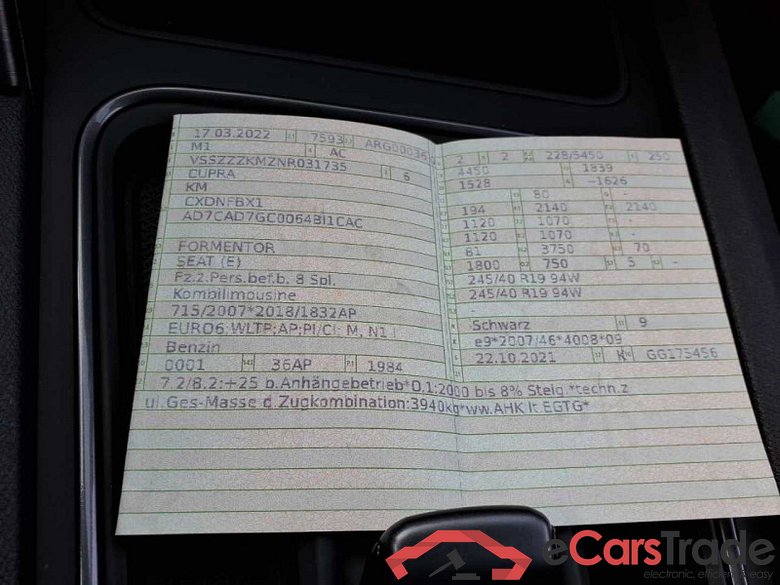 17.03.2022 7593 ARG00036
M1 AC
VSSZZZKMZNR031735 6
CUPRA
KM
CXDNFBX1
AD7CAD7GC0064BI1CAC
FORMENTOR
SEAT (E)
Fz.z.Pers.bef.b. 8 Spl.
Kombilimousine
715/2007*2018/1832AP
EURO6;WLTP;AP;PI/CI; M, N1 I
Benzin
0001 36AP 1984
2 2 228/5450 250
4450 1839
1528 -1626
- 80 -
194 2140 2140
1120 1070 -
1120 1070 -
81 3750 70
1800 750 5 -
245/40 R19 94W
245/40 R19 94W
-
-
Schwarz 9
e9*2007/46*4008*09
22.10.2021 K GG175456
7.2/8.2:+25 b.Anhängebetrieb*O.1:2000 bis 8% Steig.*techn.z
ul.Ges-Masse d.Zugkombination:3940kg*ww.AHK lt.EGTG*
eCarsTrade
electronic, efficient & easy